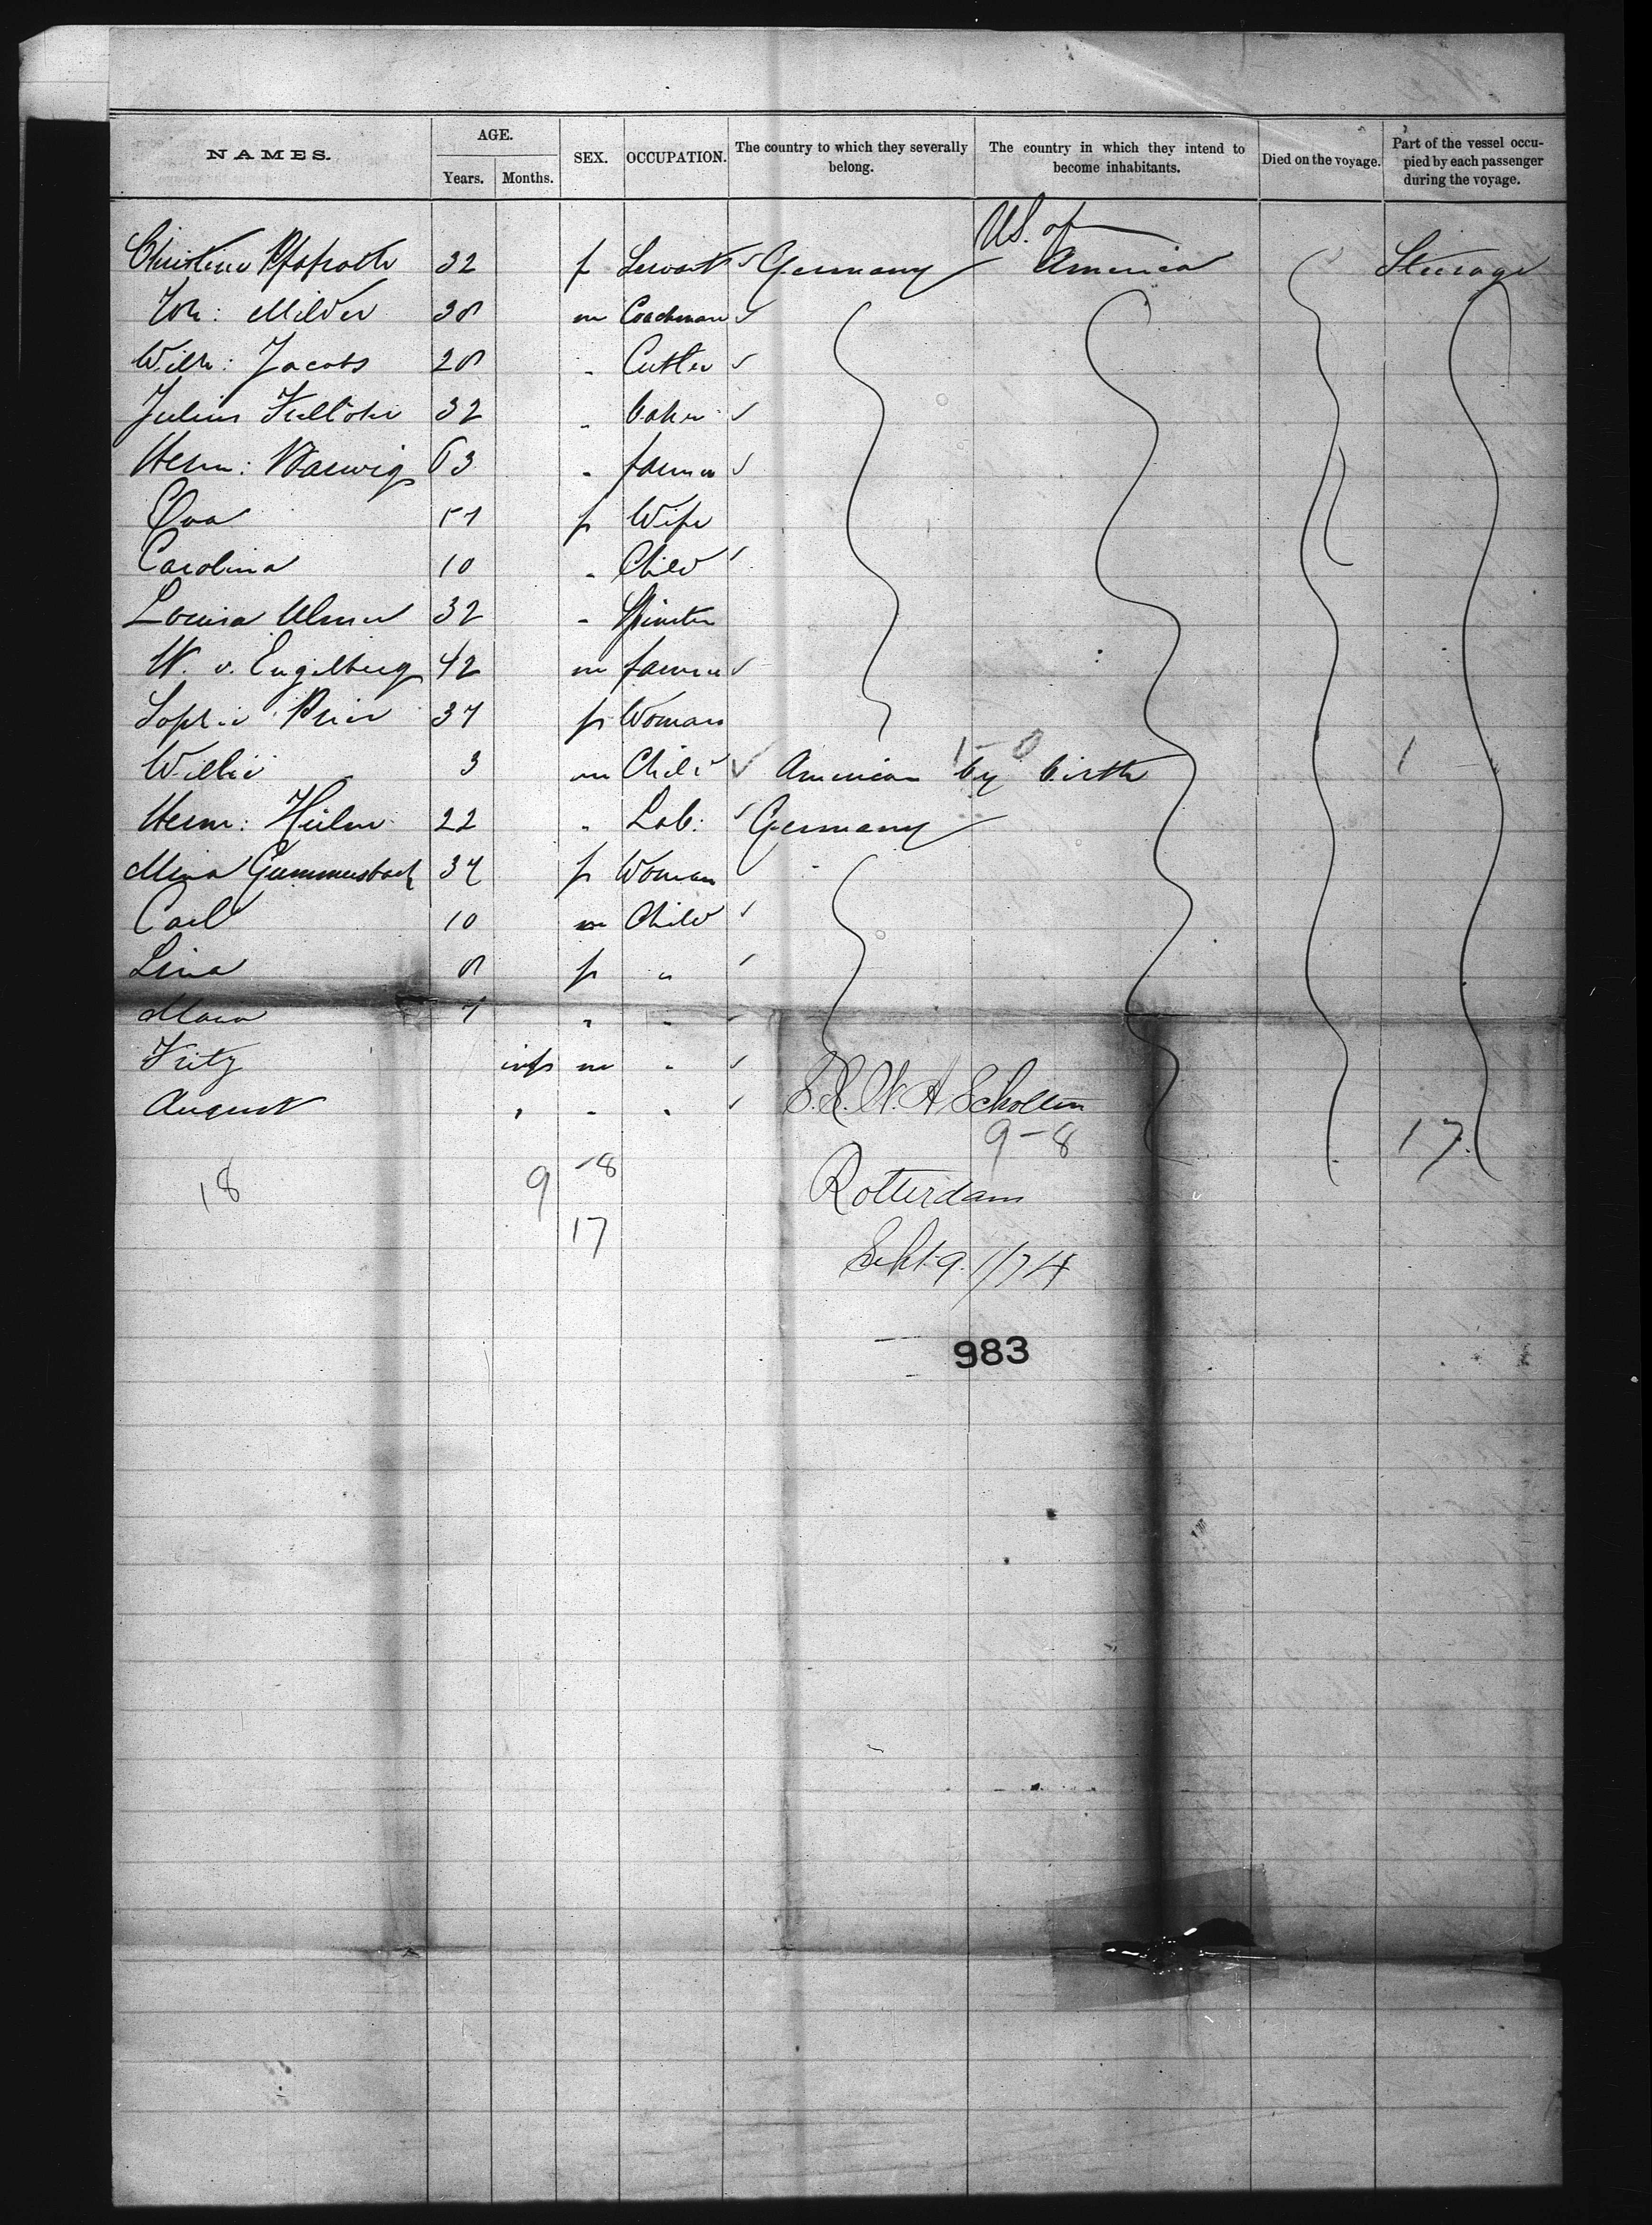 NAMES. AGE. Years. Months. SEX. OCCUPATION. The country to which they severally belong. The country in which they intend to become inhabitants. Died on the voyage. Part of the vessel occupied by each passenger during the voyage.
US. of
Christine 32 f Servant ✓ Germany America Steerage
Joh: Milder 38 m Coachman ✓
Wilh: Jacobs 28 " Cutler ✓
Julius 32 " baker ✓
Herm: Barwig 63 " farmer ✓
Eva 57 f Wife
Carolina 10 " Child ✓
Louisa Ulmer 32 " Spinster
W. v. Engelberg 42 m farmer ✓
Sophie Prior 37 f Woman
1 - 0
Willie 3 m Child ✓ American by birth 1
Herm: Heilm 22 " Lab: ✓ Germany
Mina Gummersbach 34 f Woman
Carl 10 m Child ✓
Lina 8 f " ✓
Maria 7 " " ✓
Fritz inf m " ✓
August " " " ✓ S.S. W. A Scholten
9-8 17.
18 9 -8 Rotterdam
17
Sept. 9. /74
983